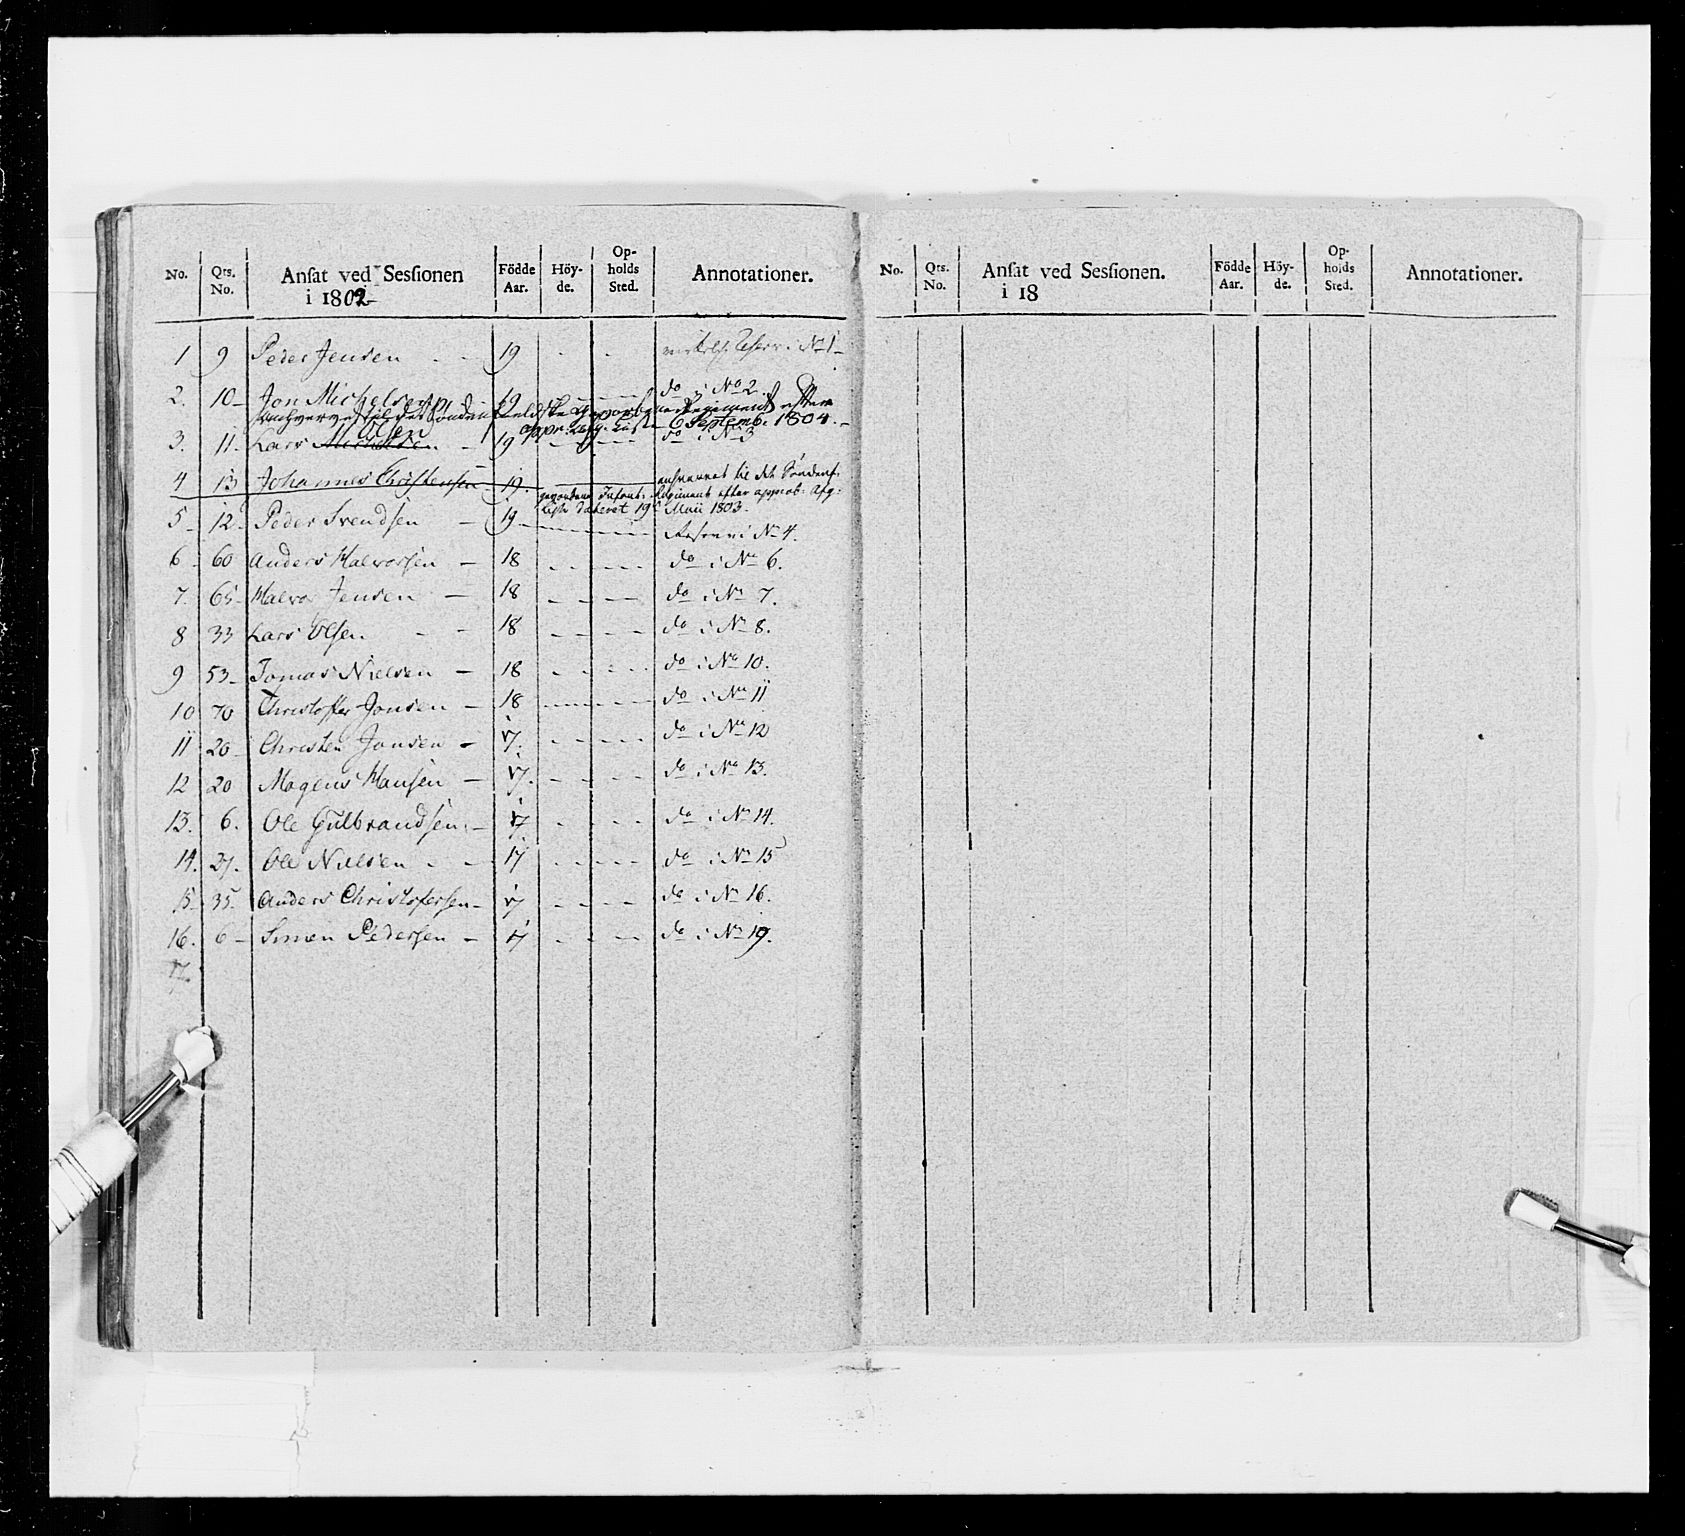 No. Qrs. No. Ansat ved Sessionen i 1802 Födde Aar. Höyde. Opholds Sted. Annotationer.
1 9 Peder Jensen - - 19 - - i No 1
2. 10 Jon Michelsen 19 do i No 2
anhvervet til det Söndenfieldske gevorbene Regiment efter
appr: Afg: Liste 6 Septemb: 1804.
Olsen
3. 11. Lars 19 do i No 3
4 13 Johannes Christensen 19. anhvervet til det Söndenf:
gevorbene Infant: Regiment efter approb: Afg:
Liste dateret 19 Maii 1803.
5 12 Peder Svendsen - 19 - Reserve i No 4.
6 60 Anders Halvorsen - 18 do i No 6.
7. 65 Halvor Jensen - 18 do i No 7.
8 33 Lars Olsen - - 18 do i No 8.
9 53 Tomas Nielsen - 18 do i No 10.
10 70 Christoffer Jonsen - 18 do i No 11
11 20 Christen Jonsen - 17. do i No 12
12 20 Mogens Hansen - 17. do i No 13.
13. 6. Ole Gulbrandsen - 17 do i No 14.
14. 27. Ole Nielsen - - 17 do i No 15
15 35 Anders Christofersen - 17 do i No 16.
16. 6 Simen Pedersen - 17 do i No 19.
17
No. Qrs. No. Ansat ved Sessionen. i 18 Födde Aar. Höyde. Opholds Sted. Annotationer.